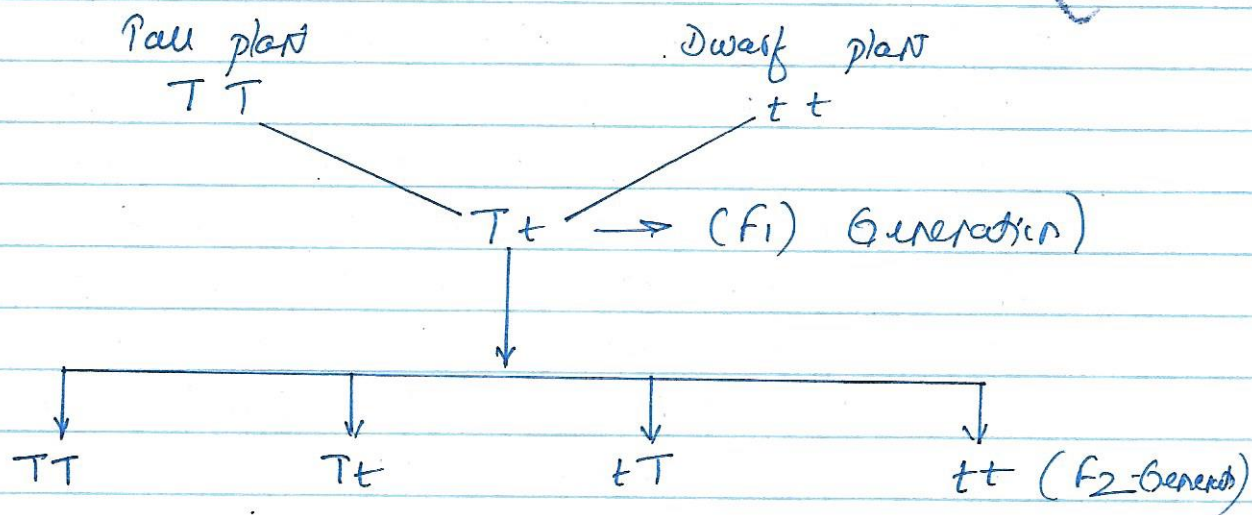 Tall plant Dwarf plant
T T t t
Tt → (F1) Generation)
TT Tt tT tt (F2-Generatn)